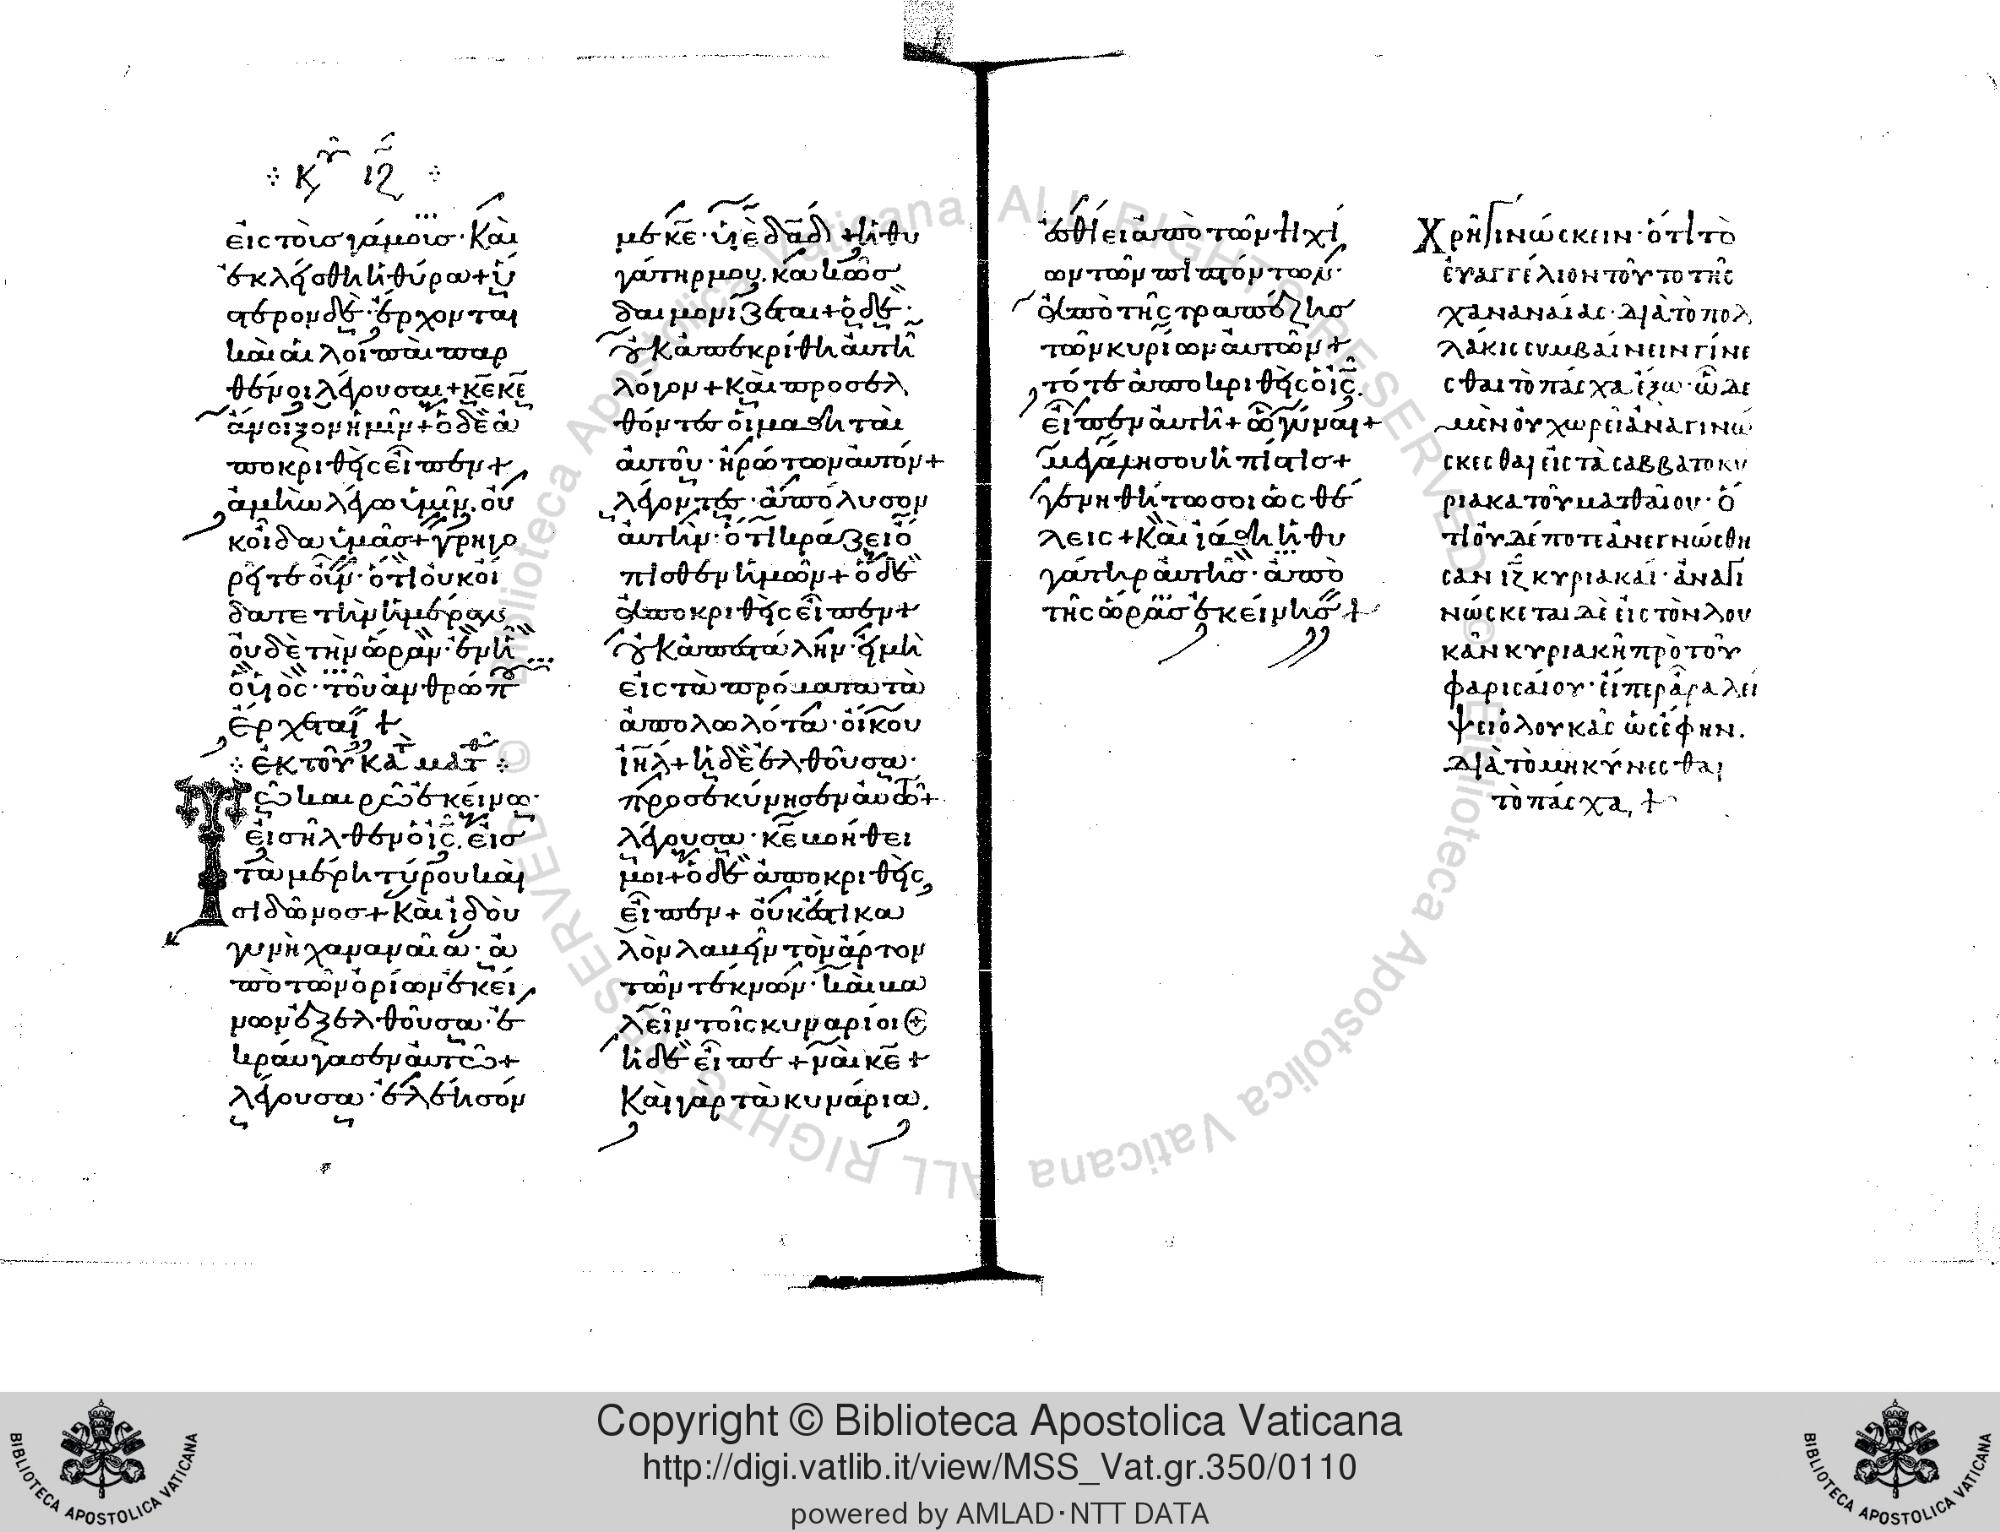 Κυ ιζ
εἰς τοὺς γάμους· Καὶ
ἐκλείσθη ἡ θύρα + ὕ
στερον δὲ· ἔρχονται
καὶ αἱ λοιπαὶ παρ
θένοι λέγουσαι + κε κε
ἄνοιξον ἡμῖν + ὁ δὲ ἀ
ποκριθεὶς εἶπεν +
ἀμὴν λέγω ὑμῖν, οὐ
κ οἶδα ὑμᾶς + γρηγο
ρεῖτε οὖν· ὅτι οὐκ οἴ
δατε τὴν ἡμέραν
οὐδὲ τὴν ὥραν· ἐν ᾗ
ὁ υἱὸς· τοῦ ἀνθρώπου
ἔρχεται +
ἐκ τοῦ κατὰ ματθ
Τῶ καιρῶ ἐκείνω·
εἰσῆλθεν ὁ ις, εἰς
τὰ μέρη τύρου καὶ
σιδῶνος + Καὶ ἰδοὺ
γυνὴ χαναναία· ἀ
πὸ τῶν ὁρίων ἐκεί
νων ἐξελθοῦσα· ἐ
κραύγασεν αὐτῶ +
λέγουσα· ἐλέησόν
με κε· υἱὲ δαδ + ἡ θυ
γάτηρ μου, κακῶς
δαιμονίζεται + ὁ δὲ·
οὐκ ἀπεκρίθη αὐτῆ
λόγον + Καὶ προσελ
θόντες οἱ μαθηταὶ
αὐτοῦ· ἠρώτων αὐτόν +
λέγοντες· ἀπόλυσον
αὐτήν· ὅτι κράζει ὄ
πισθεν ἡμῶν + ὁ δὲ
ἀποκριθεὶς εἶπεν +
οὐκ ἀπεστάλην· εἰ μὴ
εἰς τὰ πρόβατα τὰ
ἀπολωλότα· οἴκου
ιηλ + ἡ δὲ ἐλθοῦσα·
προσεκύνησεν αὐτῶ +
λέγουσα· κε βοήθει
μοι + ὁ δὲ ἀποκριθεὶς,
εἶπεν + οὐκ ἔστι κα
λὸν λαβεῖν τὸν ἄρτον
τῶν τέκνων· καὶ βα
λεῖν τοῖς κυναρίοις
ἡ δὲ εἶπε + ναὶ κε +
Καὶ γὰρ τὰ κυνάρια,
ἐσθίει ἀπὸ τῶν ψιχί
ων τῶν πιπτόντων·
ἀπὸ τῆς τραπέζης
τῶν κυρίων αὐτῶν +
τότε ἀποκριθεὶς ὁ ις,
εἶπεν αὐτῆ + ὦ γύναι +
μεγάλη σου ἡ πίστις +
γενηθήτω σοι ὡς θέ
λεις + Καὶ ἰάθη ἡ θυ
γάτηρ αὐτῆς· ἀπὸ
τῆς ὥρας ἐκείνης +
Χρὴ γινώσκειν· ὅτι τὸ
ἐυαγγέλιον τοῦτο τῆς
χαναναίας· διὰ τὸ πολ
λάκις συμβαίνειν γίνε
σθαι τὸ πάσχα ἔξω· ὧδε
μὲν οὐ χωρεῖ ἀναγινώ
σκεσθαι εἰς τὰ σαββατοκυ
ριακα τοῦ ματθαῖου· ὅ
τι οὐδέποτε ἀνεγνώσθη
σαν ιζ κυριακαί· ἀναγι
νώσκεται δὲ εἰς τὸν λου
κᾶν κυριακῆ πρὸ τοῦ
φαρισαίου· εἴπερ ἆρα λεί
ψει ὁ λουκᾶς ὡς ἔφην.
διὰ τὸ μηκύνεσθαι
τὸ πάσχα, +
Copyright © Biblioteca Apostolica Vaticana
http://digi.vatlib.it/view/MSS_Vat.gr.350/0110
powered by AMLAD·NTT DATA
BIBLIOTECA APOSTOLICA VATICANA
BIBLIOTECA APOSTOLICA VATICANA
© Biblioteca Apostolica Vaticana ALL RIGHTS RESERVED
© Biblioteca Apostolica Vaticana ALL RIGHTS RESERVED